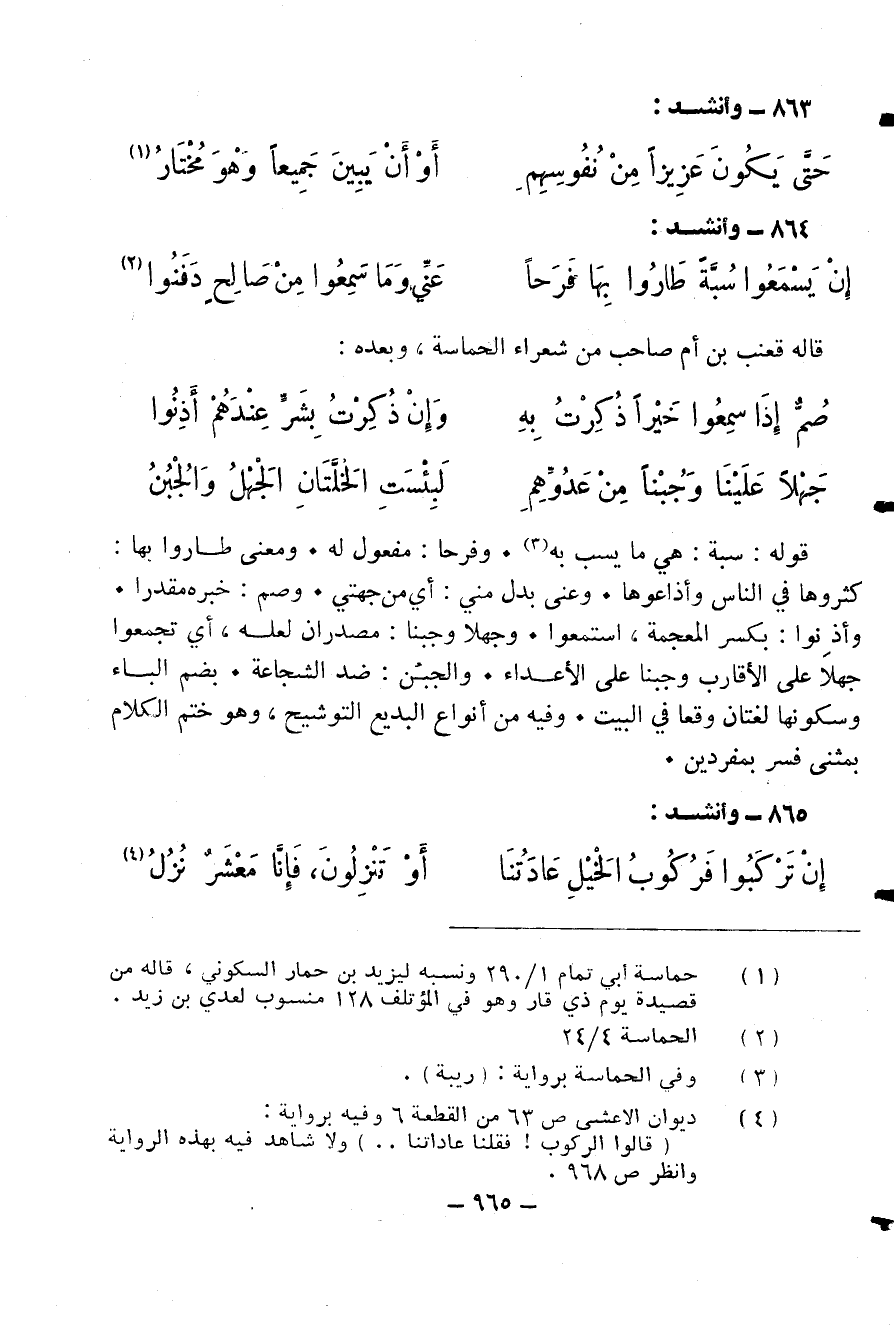 ٨٦٣ ــ وأنشــد :
حَتَّى يَكُونَ عَزِيزاً مِنْ نُفُوسِهِمِ أَوْ أَنْ يَبِينَ جَمِيعاً وَهْوَ مُخْتَارُ (١)
٨٦٤ ــ وأنشــد :
إِنْ يَسْمَعُوا سُبَّةً طَارُوا بِهَا فَرَحاً عَنِّي وَمَا سَمِعُوا مِنْ صَالِحٍ دَفَنُوا (٢)
قاله قعنب بن أم صاحب من شعراء الحماسة ، وبعده :
صُمٌّ إِذَا سَمِعُوا خَيْراً ذُكِرْتُ بِهِ وَإِنْ ذُكِرْتُ بِشَرٍّ عِنْدَهُمْ أَذِنُوا
جَهْلاً عَلَيْنَا وَجُبْناً مِنْ عَدُوِّهِمِ لَبِئْسَتِ الخُلَّتَانِ الجَهْلُ وَالجُبُنُ
قوله : سبة : هي ما يسب به(٣) • وفرحا : مفعول له • ومعنى طــاروا بها :
كثروها في الناس وأذاعوها • وعنى بدل مني : أي من جهتي • وصم : خبره مقدرا •
وأذِنوا : بكسر المعجمة ، استمعوا • وجهلا وجبنا : مصدران لعلــه ، أي تجمعوا
جهلاً على الأقارب وجبنا على الأعــداء • والجبُن : ضد الشجاعة • بضم البــاء
وسكونها لغتان وقعا في البيت • وفيه من أنواع البديع التوشيح ، وهو ختم الكلام
بمثنى فسر بمفردين •
٨٦٥ ــ وأنشــد :
إِنْ تَرْكَبُوا فَرُكُوبُ الخَيْلِ عَادَتُنَا أَوْ تَنْزِلُونَ، فَإِنَّا مَعْشَرٌ نُزُلُ (٤)
(١) حماسة أبي تمام ٢٩٠/١ ونسبه ليزيد بن حمار السكوني ، قاله من
قصيدة يوم ذي قار وهو في المؤتلف ١٢٨ منسوب لعدي بن زيد .
(٢) الحماسة ٢٤/٤
(٣) وفي الحماسة برواية : (ريبة) .
(٤) ديوان الاعشى ص ٦٣ من القطعة ٦ وفيه برواية :
( قالوا الركوب ! فقلنا عاداتنا .. ) ولا شاهد فيه بهذه الرواية
وانظر ص ٩٦٨ .
ــ ٩٦٥ ــ